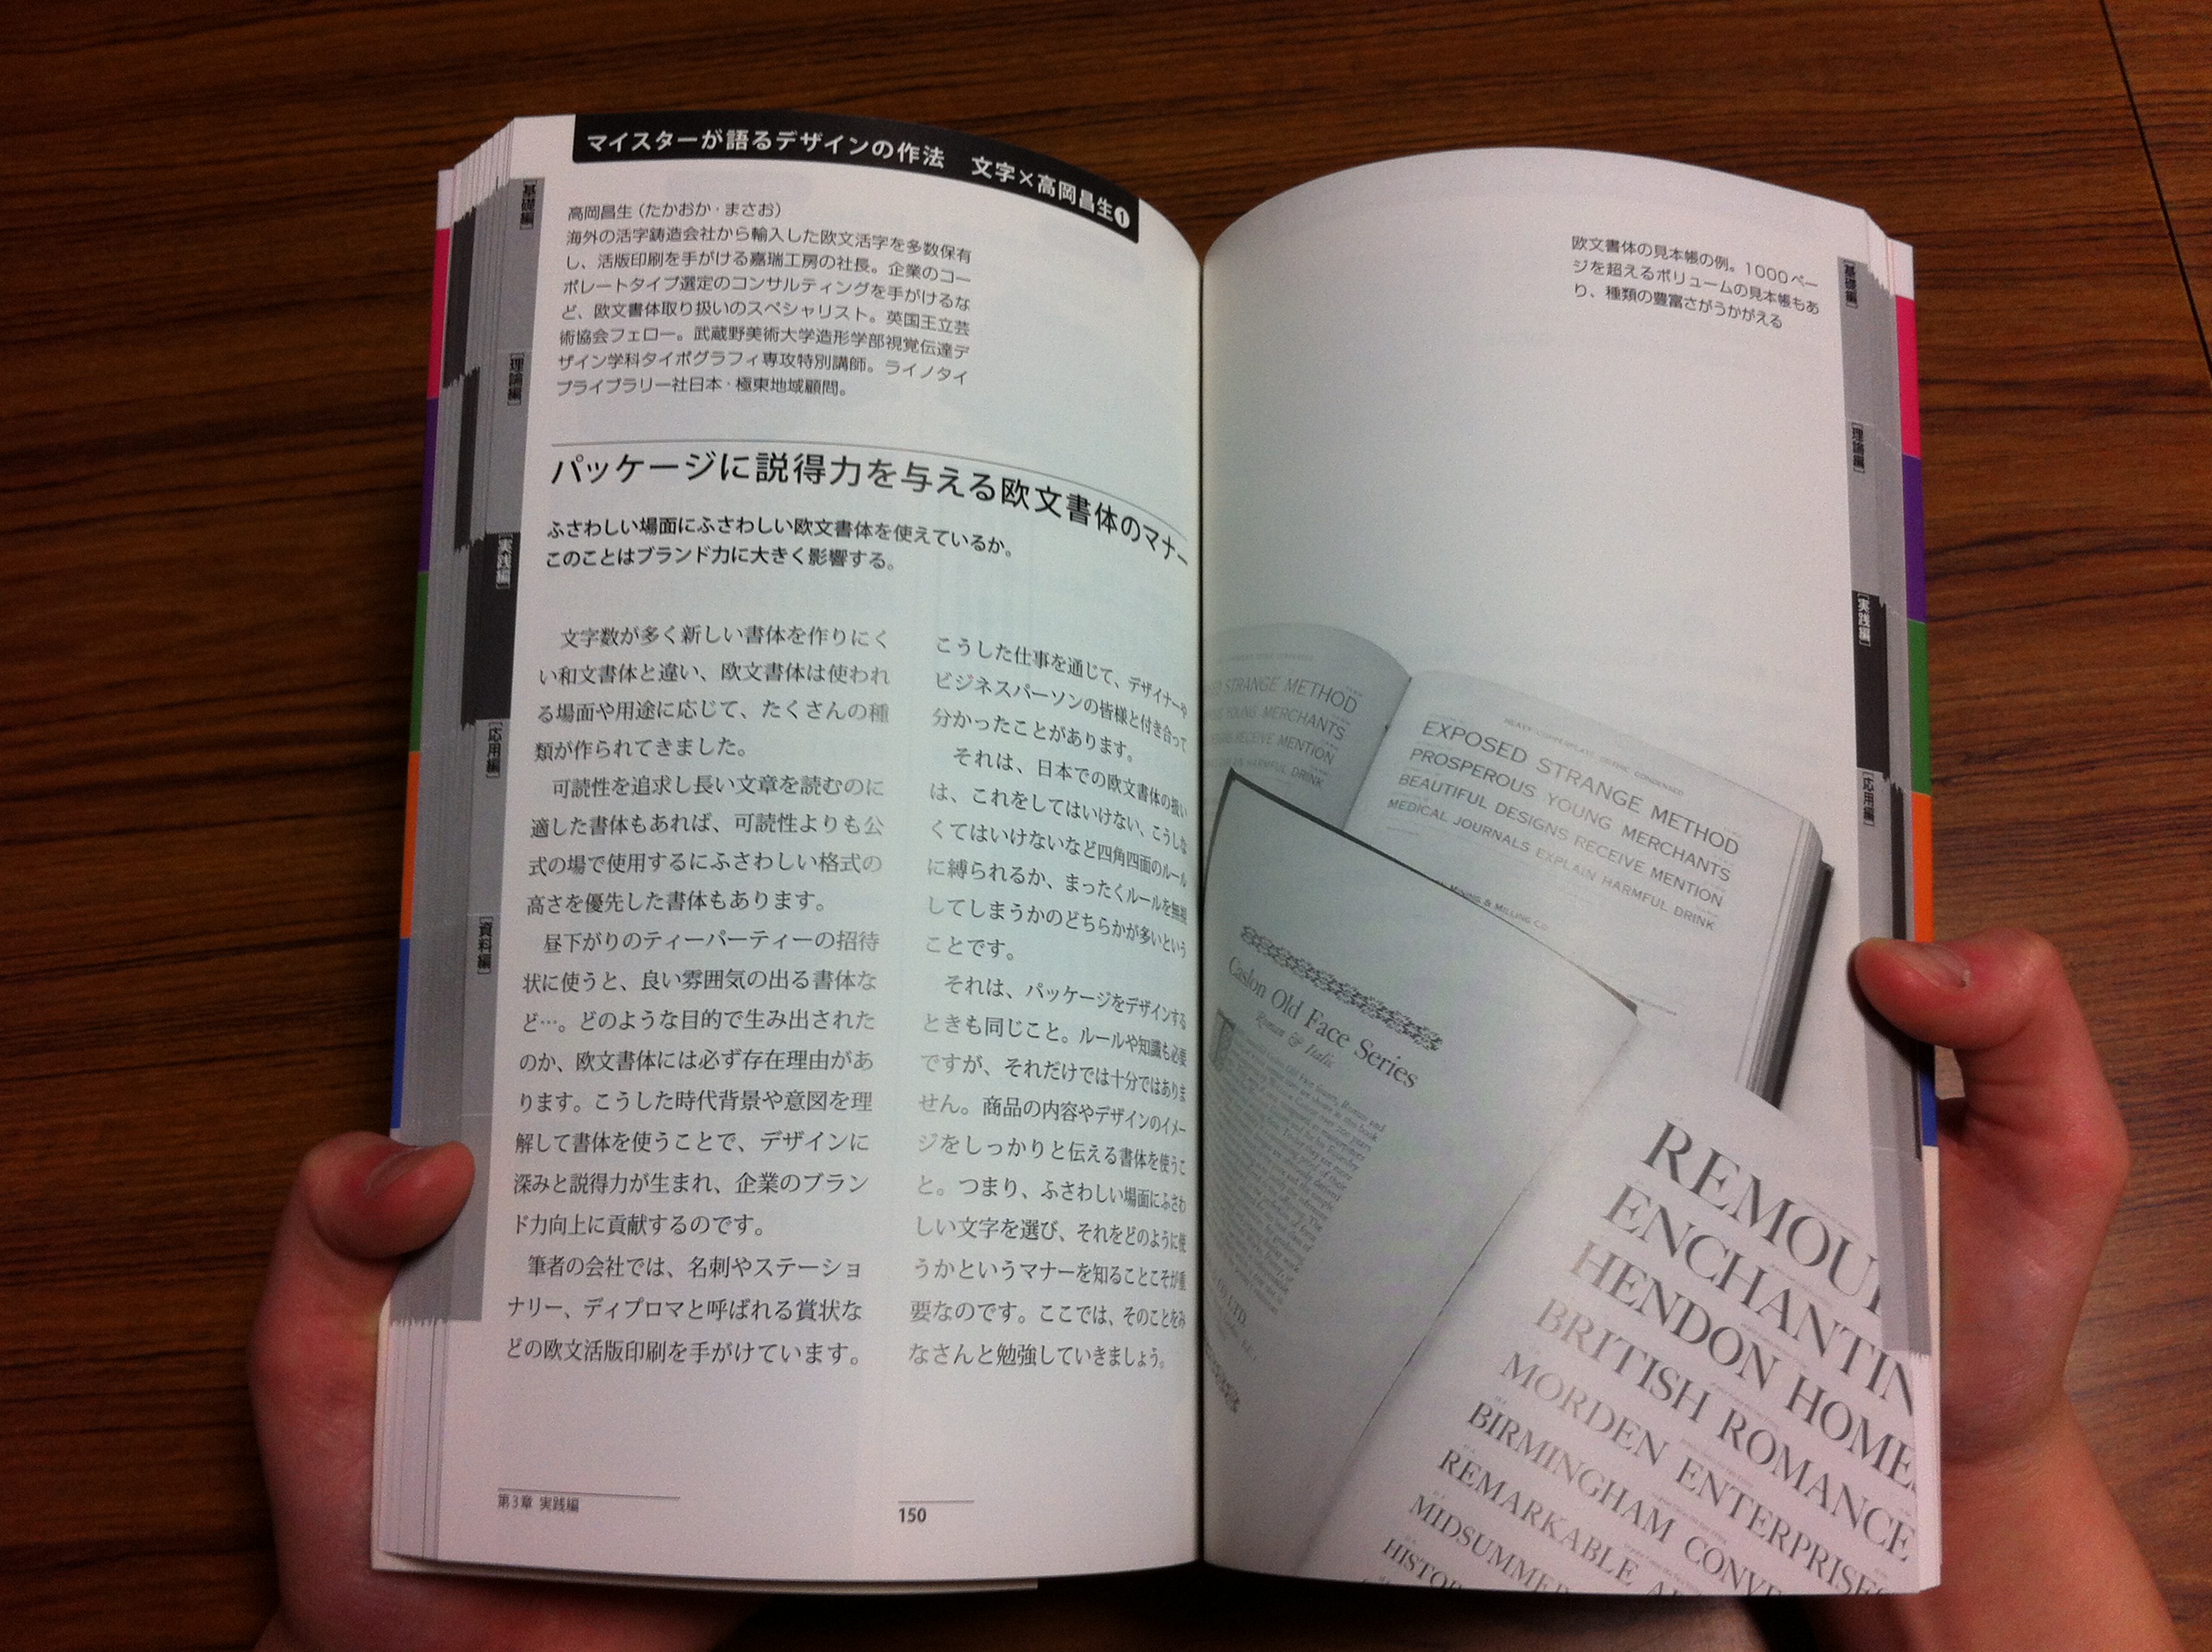 マイスターが語るデザインの作法　文字×高岡昌生❶
高岡昌生（たかおか・まさお）
海外の活字鋳造会社から輸入した欧文活字を多数保有
し、活版印刷を手がける嘉瑞工房の社長。企業のコー
ポレートタイプ選定のコンサルティングを手がけるな
ど、欧文書体取り扱いのスペシャリスト。英国王立芸
術協会フェロー。武蔵野美術大学造形学部視覚伝達デ
ザイン学科タイポグラフィ専攻特別講師。ライノタイ
プライブラリー社日本・極東地域顧問。
パッケージに説得力を与える欧文書体のマナー
ふさわしい場面にふさわしい欧文書体を使えているか。
このことはブランド力に大きく影響する。
文字数が多く新しい書体を作りにく
い和文書体と違い、欧文書体は使われ
る場面や用途に応じて、たくさんの種
類が作られてきました。
可読性を追求し長い文章を読むのに
適した書体もあれば、可読性よりも公
式の場で使用するにふさわしい格式の
高さを優先した書体もあります。
昼下がりのティーパーティーの招待
状に使うと、良い雰囲気の出る書体な
ど…。どのような目的で生み出された
のか、欧文書体には必ず存在理由があ
ります。こうした時代背景や意図を理
解して書体を使うことで、デザインに
深みと説得力が生まれ、企業のブラン
ド力向上に貢献するのです。
筆者の会社では、名刺やステーショ
ナリー、ディプロマと呼ばれる賞状な
どの欧文活版印刷を手がけています。
こうした仕事を通じて、デザイナーや
ビジネスパーソンの皆様と付き合って
分かったことがあります。
それは、日本での欧文書体の扱い
は、これをしてはいけない、こうしな
くてはいけないなど四角四面のルール
に縛られるか、まったくルールを無視
してしまうかのどちらかが多いという
ことです。
それは、パッケージをデザインする
ときも同じこと。ルールや知識も必要
ですが、それだけでは十分ではありま
せん。商品の内容やデザインのイメー
ジをしっかりと伝える書体を使うこ
と。つまり、ふさわしい場面にふさわ
しい文字を選び、それをどのように使
うかというマナーを知ることこそが重
要なのです。ここでは、そのことをみ
なさんと勉強していきましょう。
第3章 実践編
150
[基礎編]
[理論編]
[実践編]
[応用編]
[資料編]
欧文書体の見本帳の例。1000ペー
ジを超えるボリュームの見本帳もあ
り、種類の豊富さがうかがえる
[基礎編]
[理論編]
[実践編]
[応用編]
STRANGE METHOD
YOUNG MERCHANTS
RECEIVE MENTION
HARMFUL DRINK
HEAVY COPPERPLATE GOTHIC CONDENSED
EXPOSED STRANGE METHOD
PROSPEROUS YOUNG MERCHANTS
BEAUTIFUL DESIGNS RECEIVE MENTION
MEDICAL JOURNALS EXPLAIN HARMFUL DRINK
MINING & MILLING CO
Caslon Old Face Series
Roman & Italic
REMOU
ENCHANTIN
HENDON HOME
BRITISH ROMANCE
MORDEN ENTERPRISE
BIRMINGHAM CONV
REMARKABLE
MIDSUMMER
HISTO